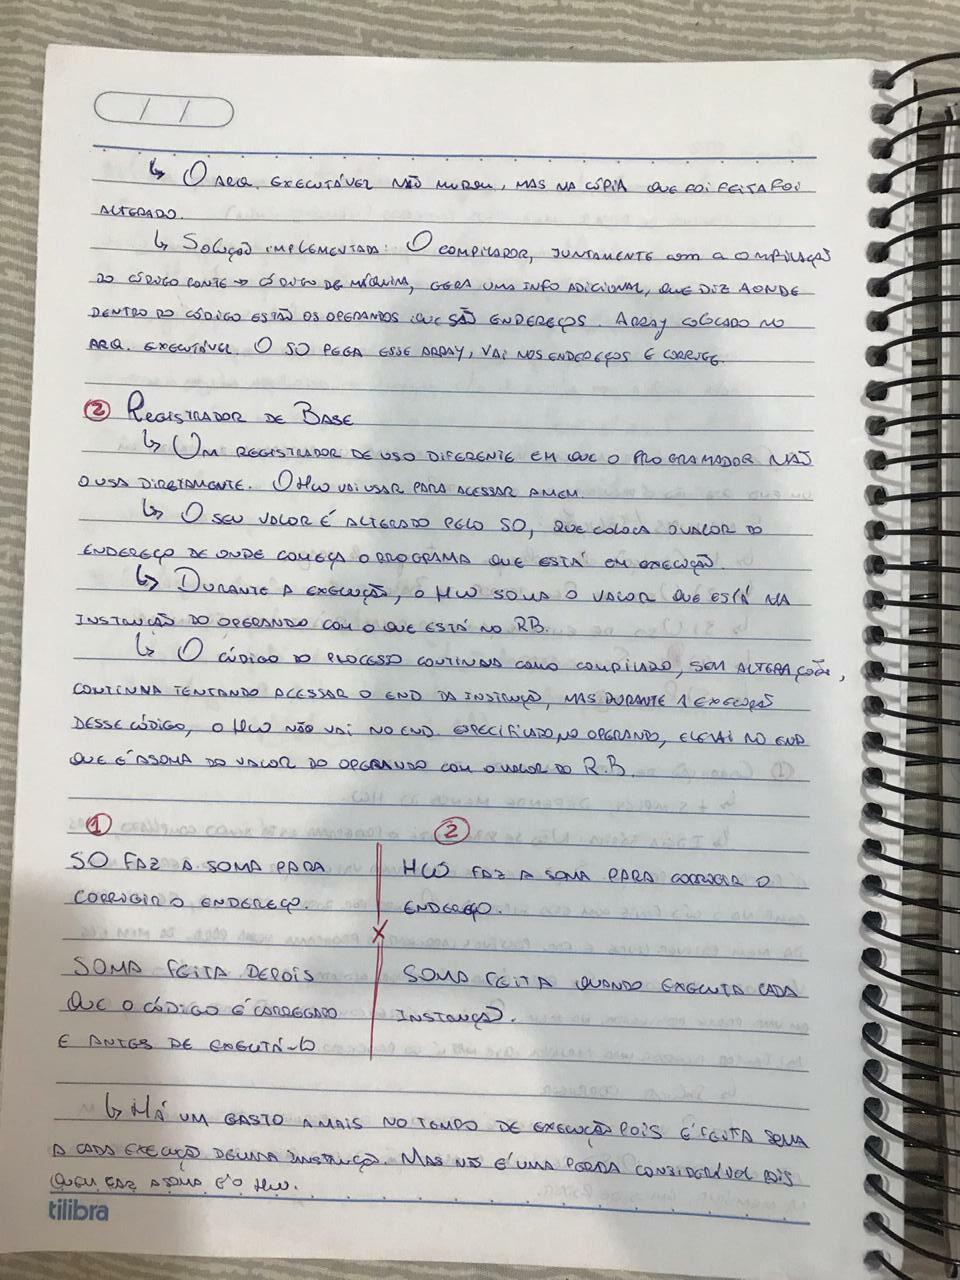 ↳ O ARQ. EXECUTÁVEL NÃO MUDOU, MAS NA CÓPIA QUE FOI FEITA FOI
ALTERADO.
↳ SOLUÇÃO IMPLEMENTADA: O COMPILADOR, JUNTAMENTE COM A COMPILAÇÃO
DO CÓDIGO FONTE → CÓDIGO DE MÁQUINA, GERA UMA INFO ADICIONAL, QUE DIZ AONDE
DENTRO DO CÓDIGO ESTÃO OS OPERANDOS QUE SÃO ENDEREÇOS. ARRAY COLOCADO NO
ARQ. EXECUTÁVEL. O SO PEGA ESSE ARRAY, VAI NOS ENDEREÇOS E CORRIGE.
② REGISTRADOR DE BASE
↳ UM REGISTRADOR DE USO DIFERENTE EM QUE O PROGRAMADOR NÃO
O USA DIRETAMENTE. O HW VAI USAR PARA ACESSAR A MEM.
↳ O SEU VALOR É ALTERADO PELO SO, QUE COLOCA O VALOR DO
ENDEREÇO DE ONDE COMEÇA O PROGRAMA QUE ESTÁ EM EXECUÇÃO.
↳ DURANTE A EXECUÇÃO, O HW SOMA O VALOR QUE ESTÁ NA
INSTRUÇÃO DO OPERANDO COM O QUE ESTÁ NO RB.
↳ O CÓDIGO DO PROCESSO CONTINUA COMO COMPILADO, SEM ALTERAÇÕES,
CONTINUA TENTANDO ACESSAR O END DA INSTRUÇÃO, MAS DURANTE A EXECUÇÃO
DESSE CÓDIGO, O HW NÃO VAI NO END. ESPECIFICADO, NO OPERANDO, ELE VAI NO END
QUE É A SOMA DO VALOR DO OPERANDO COM O VALOR DO R.B.
① ②
SO FAZ A SOMA PARA HW FAZ A SOMA PARA CORRIGIR O
CORRIGIR O ENDEREÇO. ENDEREÇO.
X
SOMA FEITA DEPOIS SOMA FEITA QUANDO EXECUTA CADA
QUE O CÓDIGO É CARREGADO INSTRUÇÃO.
E ANTES DE EXECUTÁ-LO
↳ HÁ UM GASTO A MAIS NO TEMPO DE EXECUÇÃO POIS É FEITA SOMA
A CADA EXECUÇÃO DE UMA INSTRUÇÃO. MAS NÃO É UMA PERDA CONSIDERÁVEL POIS
QUEM FAZ A SOMA É O HW.
tilibra